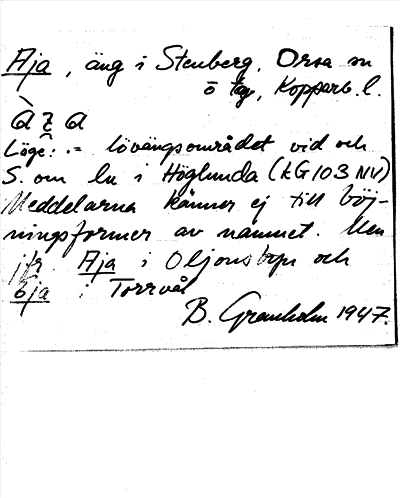 Aja, äng i Stenberg, Orsa sn
ö tg, Kopparb. l.
Läge: .= lövängsområdet vid och
S. om ln i Höglunda (LG103 NV)
Meddelarna känner ej till böj-
ningsformer av namnet. Men
jfr. Aja i Oljonsbyn och
Öja i Torrvål
B. Granholm 1947.